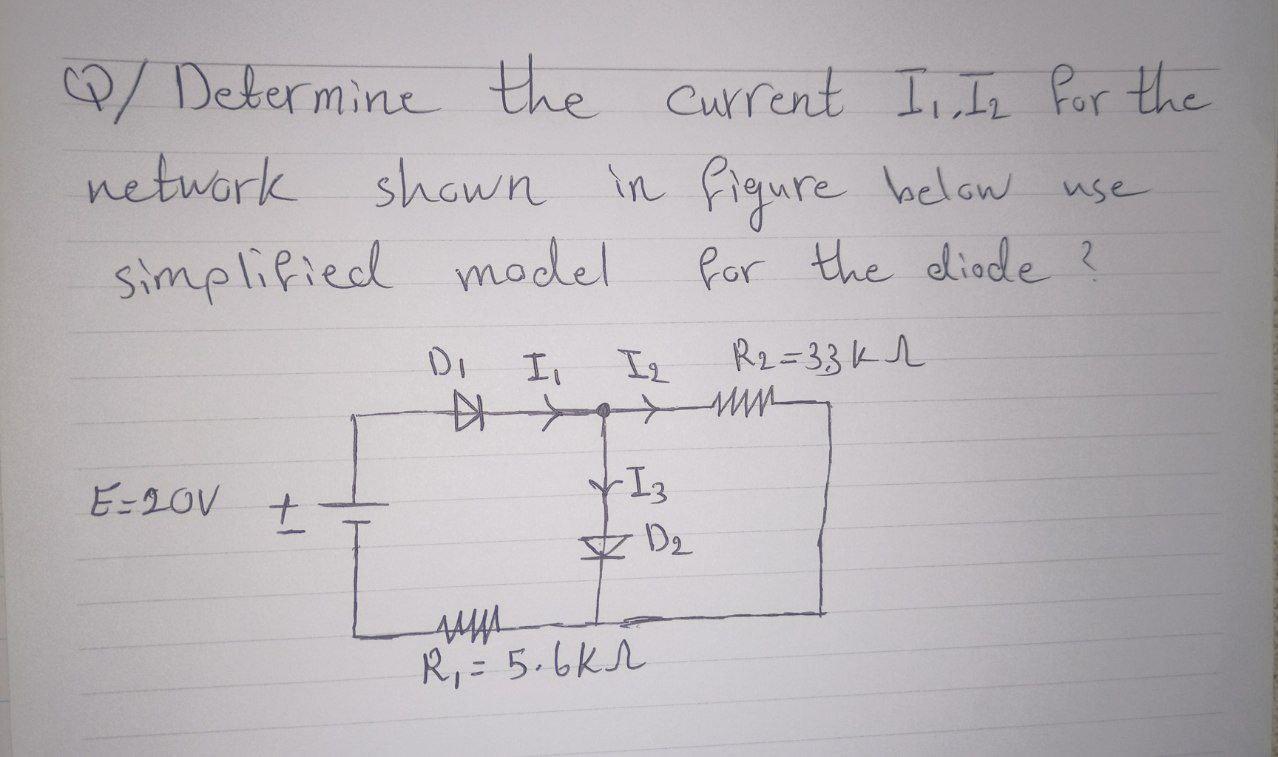 Q/ Determine the current I₁,I₂ for the
network shown in figure below use
simplified model for the diode ?
D₁ I₁ I₂ R₂=3.3kΩ
E=20V ± I₃
D₂
R₁=5.6kΩ